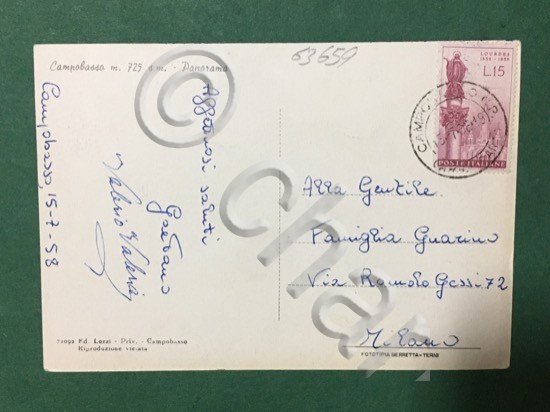 Campobasso m. 725 s.m. - Panorama
63659
LOURDES
1858 - 1958
L.15
POSTE ITALIANE
Campobasso, 15-7-58
Affettuosi saluti
Gaetano
Valerio Valeria
Alla Gentile
Famiglia Guarino
Via Romolo Gessi 72
Milano
72092 Ed. Lozzi - Priv. - Campobasso
Riproduzione vietata
FOTOTIPIA BERRETTA - TERNI
© char